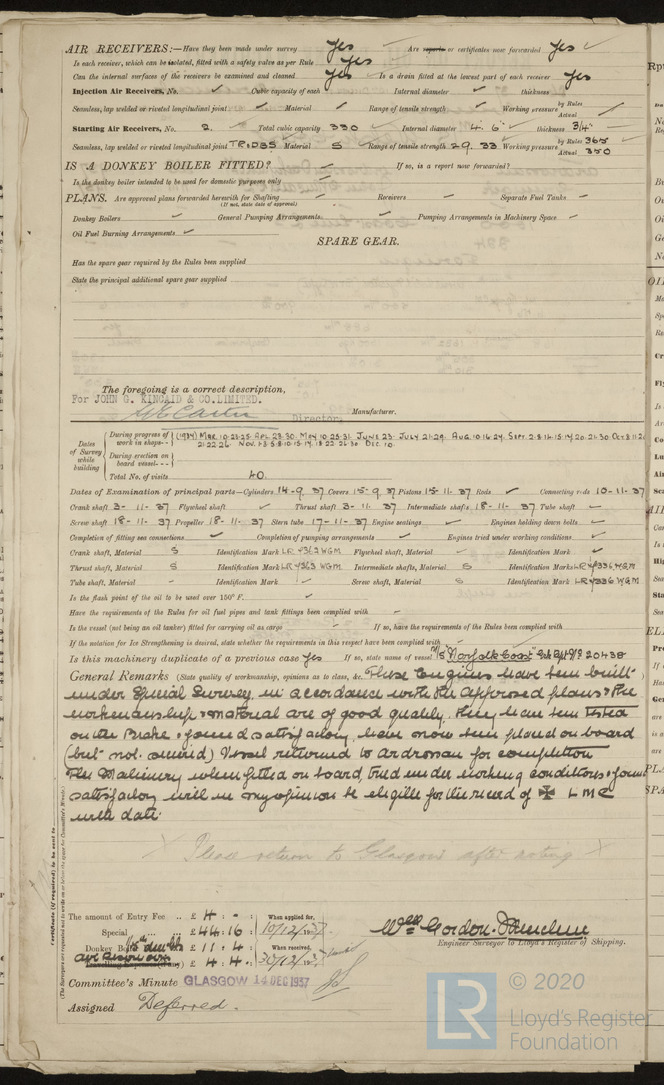 AIR RECEIVERS:—Have they been made under survey yes ✓ Are reports or certificates now forwarded yes ✓
Is each receiver, which can be isolated, fitted with a safety valve as per Rule yes
Can the internal surfaces of the receivers be examined and cleaned yes ✓ Is a drain fitted at the lowest part of each receiver yes
Injection Air Receivers, No. ✓ Cubic capacity of each Internal diameter ✓ thickness
Seamless, lap welded or riveted longitudinal joint ✓ Material ✓ Range of tensile strength ✓ Working pressure by Rules Actual
Starting Air Receivers, No. 2. Total cubic capacity 330 Internal diameter 4' 6" thickness 3/4"
Seamless, lap welded or riveted longitudinal joint TR:DBS Material S Range of tensile strength 29. 33 Working pressure by Rules 365 Actual 350
IS A DONKEY BOILER FITTED? ✓ If so, is a report now forwarded?
Is the donkey boiler intended to be used for domestic purposes only
PLANS. Are approved plans forwarded herewith for Shafting ✓ Receivers ✓ Separate Fuel Tanks ✓
(If not, state date of approval)
Donkey Boilers ✓ General Pumping Arrangements ✓ Pumping Arrangements in Machinery Space ✓
Oil Fuel Burning Arrangements ✓
SPARE GEAR.
Has the spare gear required by the Rules been supplied
State the principal additional spare gear supplied
The foregoing is a correct description,
For JOHN G. KINCAID & CO. LIMITED.
Director. Manufacturer.
Dates of Survey while building
During progress of work in shops - - (1937) Mar. 10.21.25. Apl. 28.30. May 10.25.31. June 23. July 21.29. Aug. 10.16.24. Sept. 2.8.14.15.17.20.21.30. Oct. 8.11.
During erection on board vessel - - -
Total No. of visits 40.
Dates of Examination of principal parts—Cylinders 14-9. 37 Covers 15-9. 37 Pistons 15-11- 37 Rods ✓ Connecting rods 10-11-37
Crank shaft 3- 11- 37 Flywheel shaft ✓ Thrust shaft 3-11- 37 Intermediate shafts 18-11-37 Tube shaft ✓
Screw shaft 18-11- 37 Propeller 18-11- 37 Stern tube 17-11-37 Engine seatings ✓ Engines holding down bolts ✓
Completion of fitting sea connections ✓ Completion of pumping arrangements ✓ Engines tried under working conditions ✓
Crank shaft, Material S Identification Mark LR 4362 WGM Flywheel shaft, Material ✓ Identification Mark ✓
Thrust shaft, Material S Identification Mark LR 4363 WGM Intermediate shafts, Material S Identification Marks LR 4336 WGM
Tube shaft, Material - Identification Mark Screw shaft, Material S Identification Mark LR 4336 WGM
Is the flash point of the oil to be used over 150° F. ✓
Have the requirements of the Rules for oil fuel pipes and tank fittings been complied with -
Is the vessel (not being an oil tanker) fitted for carrying oil as cargo ✓ If so, have the requirements of the Rules been complied with
If the notation for Ice Strengthening is desired, state whether the requirements in this respect have been complied with
Is this machinery duplicate of a previous case yes If so, state name of vessel M/S "Norfolk Coast" 20438
General Remarks (State quality of workmanship, opinions as to class, &c. These Engines have been built
under Special Survey in accordance with the approved plans. The
workmanship & material are of good quality. They have been tested
on the Brake & found satisfactory, have now been placed on board
(but not secured) Vessel returned to Ardrossan for completion
The Machinery when fitted on board, tried under working conditions & found
satisfactory will in my opinion be eligible for the record of ✠ LMC
with date.
Please return to Glasgow after noting
Certificate (if required) to be sent to
(The Surveyors are requested not to write on or below the space for Committee's Minute.)
The amount of Entry Fee .. £ 4 : - : When applied for,
Special .. .. £ 44 : 16 : 10/12/1937
Donkey Boiler £ 11 : 4 : When received,
£ 4 : 4 : 30/12/1937
Wm Gordon
Engineer Surveyor to Lloyd's Register of Shipping.
Committee's Minute GLASGOW 14 DEC 1937
Assigned Deferred.
© 2020
LR
Lloyd's Register
Foundation